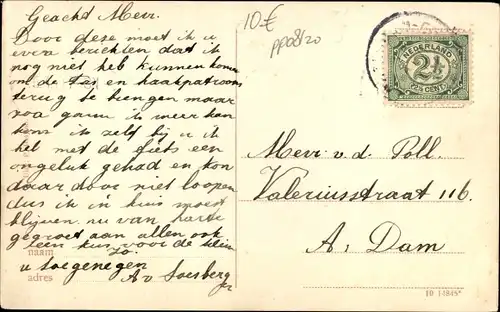 Geacht Mevr.
Door deze moet ik u
even berichten dat ik
nog niet heb kunnen komen
om de tas en haakpatroon
terug te brengen maar
ga gauw ik weer kan
kom ik zelf bij u ik
heb met de fiets een
ongeluk gehad en kon
daar door niet loopen
dus ik in huis moest
blijven nu van harte
gegroet aan allen ook
een kus voor de kleine
naam Jo.
u toegenegen
adres A v Soesbergen
10€
pp08/20
NEDERLAND
2½
(2½ CENT)
Mevr v. d. Poll.
Valeriusstraat 116.
A, Dam